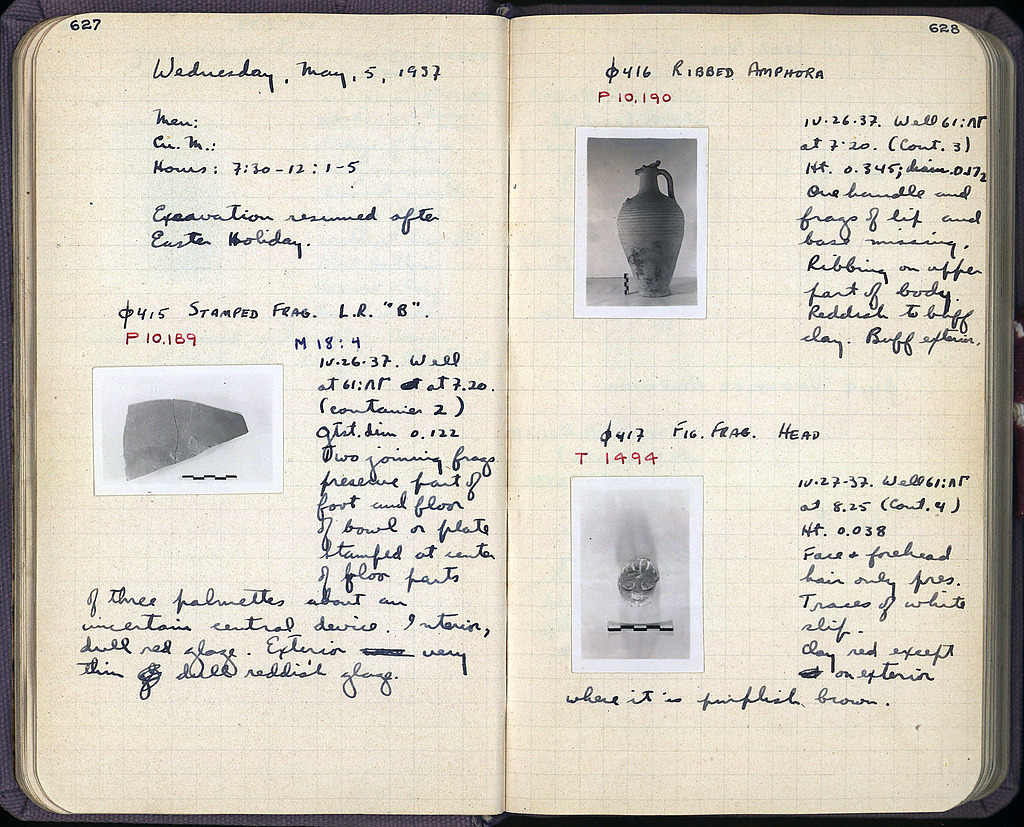 627
Wednesday, May, 5, 1937
Men:
Cu. M.:
Hours: 7:30-12 : 1-5
Excavation resumed after
Easter Holiday.
ϕ415 STAMPED FRAG. L.R. "B".
P 10,189
M 18:4
IV-26-37. Well
at 61:ΛΓ at 7.20.
(container 2)
gtst. dim 0.122
Two joining frags.
preserve part of
foot and floor
of bowl or plate
stamped at center
of floor parts
of three palmettes about an
uncertain central device. Interior,
dull red glaze. Exterior very
thin dull reddish glaze.
628
ϕ416 RIBBED AMPHORA
P 10,190
IV-26-37. Well 61:ΛΓ
at 7.20. (Cont. 3)
Ht. 0.345; diam. 0.172
One handle and
frags of lip and
base missing.
Ribbing on upper
part of body.
Reddish to buff
clay. Buff exterior.
ϕ417 FIG. FRAG. HEAD
T 1494
IV-27-37. Well 61:ΛΓ
at 8.25 (Cont. 4)
Ht. 0.038
Face + forehead
hair only pres.
Traces of white
slip.
Clay red except
on exterior
where it is purplish brown.